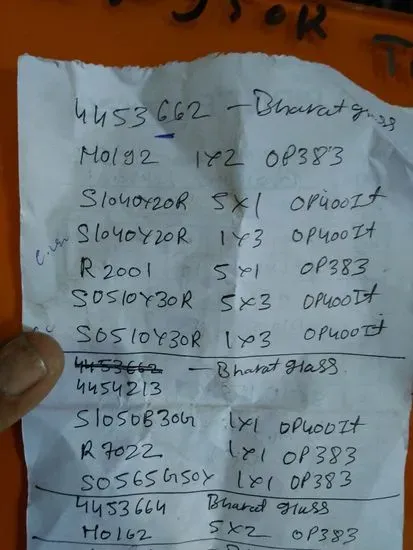 4453662 - Bharat glass
M0192 1x2 OP383
S1040Y20R 5x1 OP400It
S1040Y20R 1x3 OP400It
R2001 5x1 OP383
S0510Y30R 5x3 OP400It
S0510Y30R 1x3 OP400It
4453662 - Bharat glass
4454213
S1050B30G 1x1 OP400It
R7022 1x1 OP383
S0565G50Y 1x1 OP383
4453664 Bharat glass
M0162 5x2 OP383